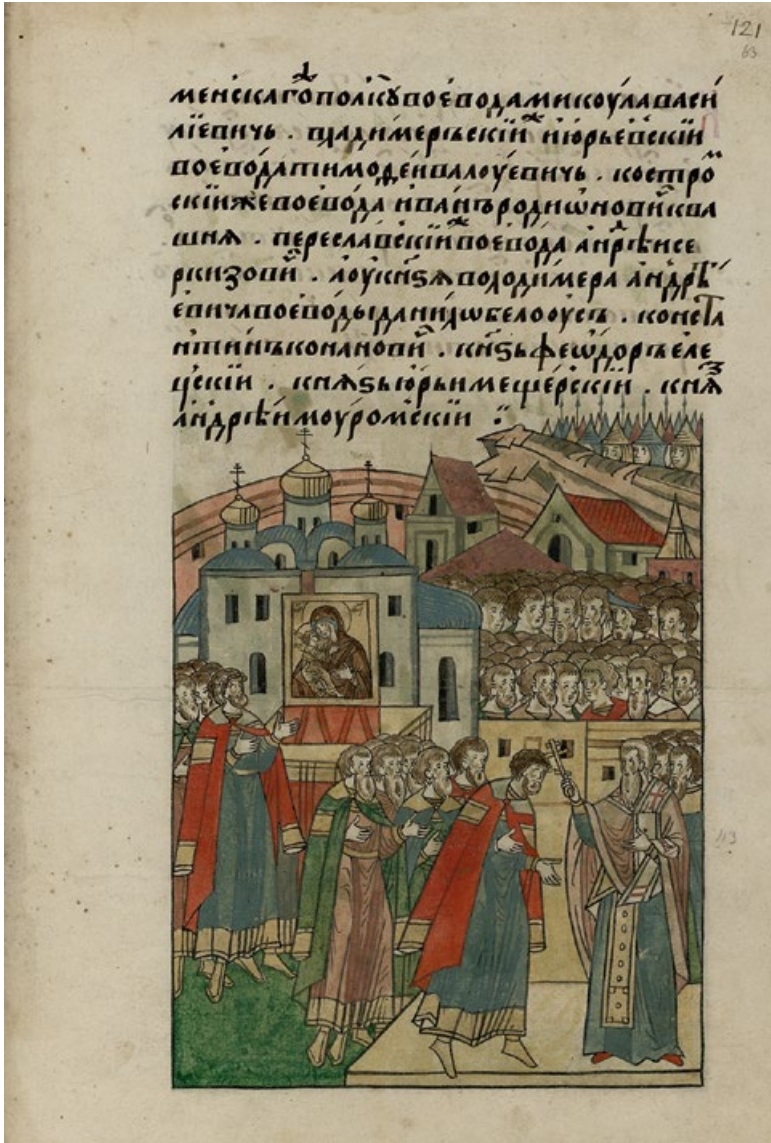 121
63
менскагоⷤ полкꙋ воевода микоула васи
лїевичь . владимерьскїиⷤ и юрьевскїи
воевода тимоѳеи валоуевичь . костроⷨ
скїиже воевода иванъ родиѡновиⷱ ква
шнѧ . переславскїиⷤ воевода анⷣрѣи се
ркизовиⷱ . а оу кн҃ѕѧ володимера андрѣ
евича воеводы данилѡ белооусъ . констⷶ
нтинъ конановиⷱ . кн҃ѕь феѡдоръ еле
цскїи . кнѧѕь юрьи мещерскїи . кнѧⷥ
андрѣи моуромскїи :